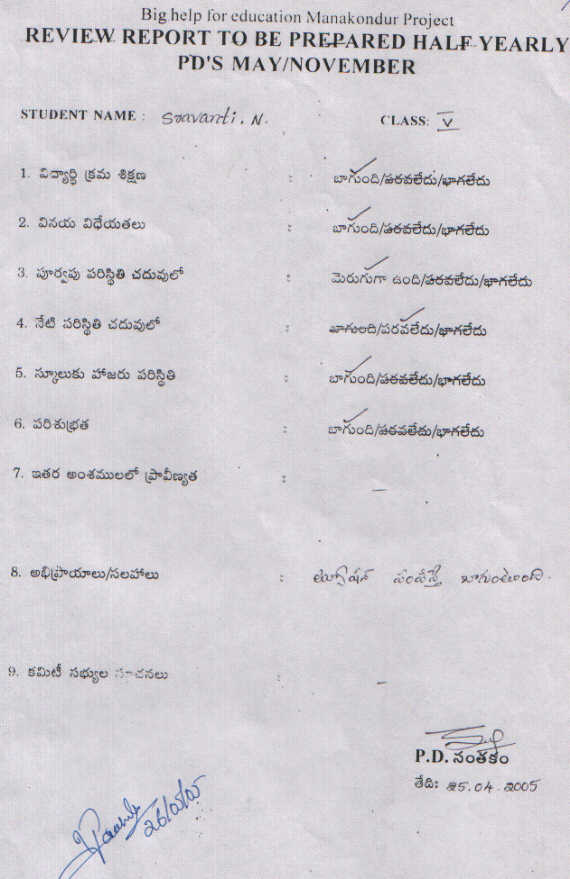 Big help for education Manakondur Project
REVIEW REPORT TO BE PREPARED HALF YEARLY
PD'S MAY/NOVEMBER
STUDENT NAME : Sravanti. N. CLASS: V
1. విద్యార్థి క్రమ శిక్షణ : బాగుంది/పరవలేదు/భాగలేదు
2. వినయ విధేయతలు : బాగుంది/పరవలేదు/భాగలేదు
3. పూర్వపు పరిస్థితి చదువులో : మెరుగుగా ఉంది/పరవలేదు/భాగలేదు
4. నేటి పరిస్థితి చదువులో : బాగుంది/పరవలేదు/భాగలేదు
5. స్కూలుకు హాజరు పరిస్థితి : బాగుంది/పరవలేదు/భాగలేదు
6. పరిశుభ్రత : బాగుంది/పరవలేదు/భాగలేదు
7. ఇతర అంశములలో ప్రావీణ్యత : –
8. అభిప్రాయాలు/సలహాలు : ట్యూషన్ పంపిస్తే బాగుంటుంది.
9. కమిటీ సభ్యుల సూచనలు : –
P.D. సంతకం
తేది: 25.04.2005